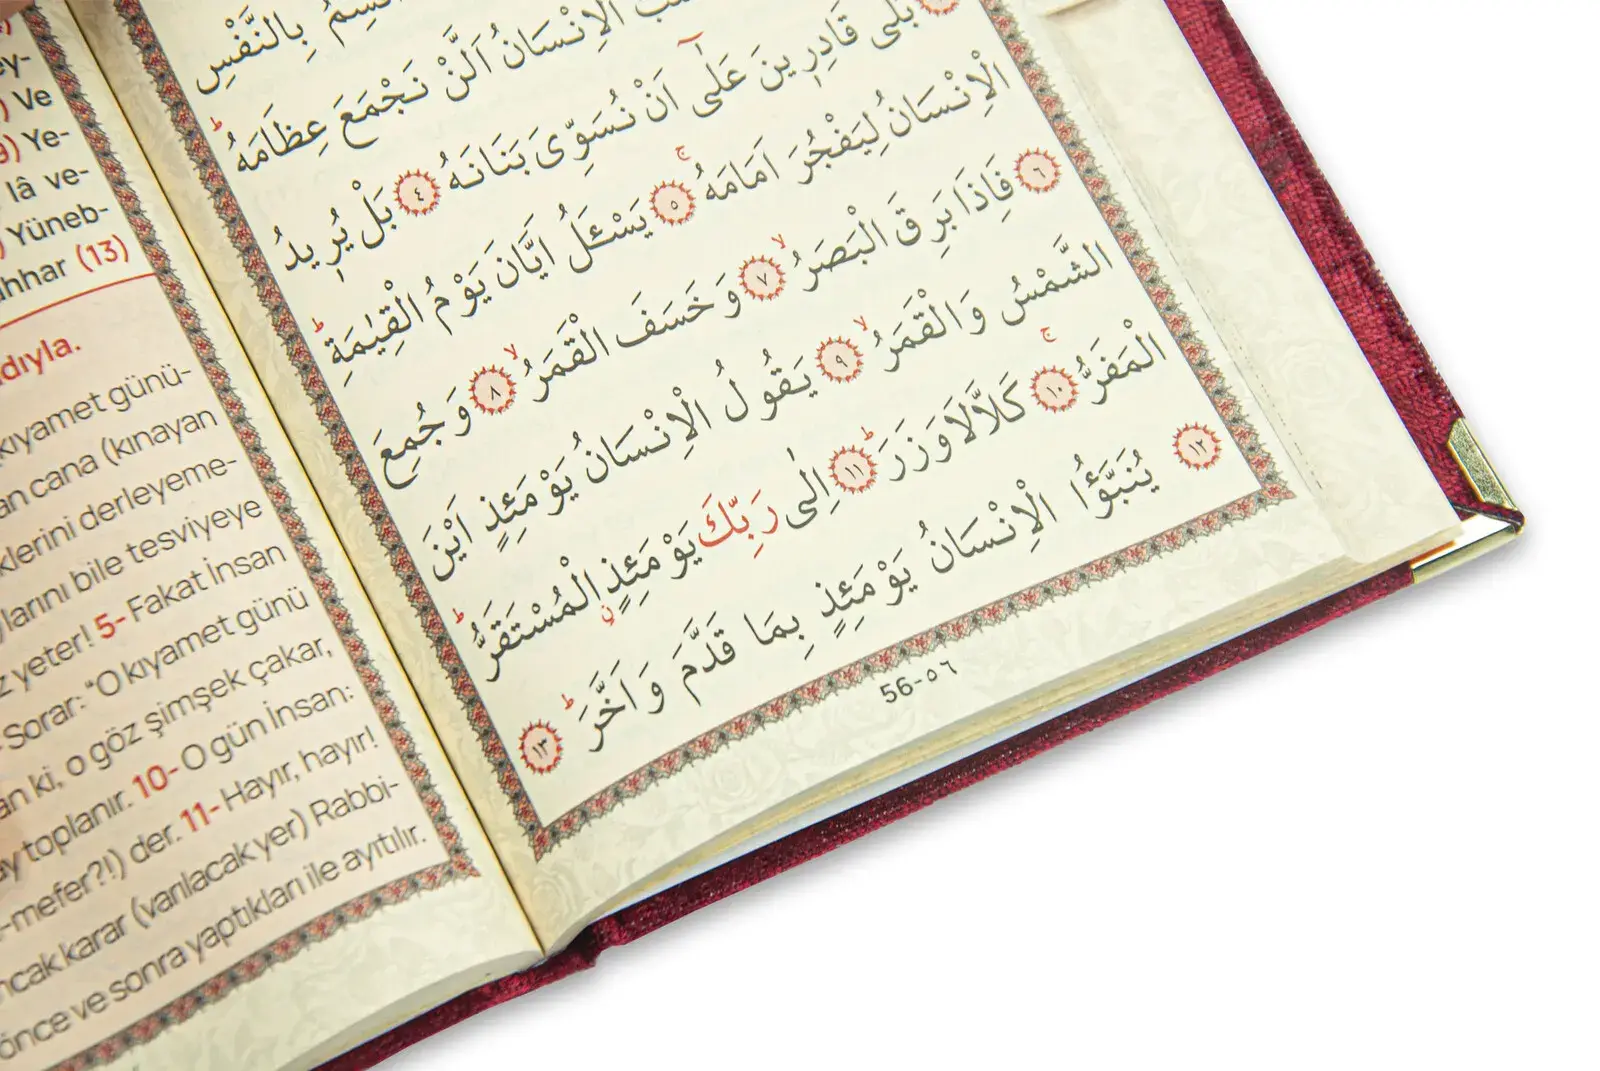 ey-
) Ve
9) Ye-
lâ ve-
) Yüneb-
ahhar (13)
dıyla.
kıyamet günü-
an cana (kınayan
klerini derleyeme-
larını bile tesviyeye
z yeter! 5- Fakat İnsan
- Sorar: “O kıyamet günü
an ki, o göz şimşek çakar,
ay toplanır. 10- O gün İnsan:
-mefer?!) der. 11- Hayır, hayır!
ncak karar (varılacak yer) Rabbi-
önce ve sonra yaptıkları ile ayıtılır.
بِالنَّفْسِ
الْاِنْسَانُ اَلَّنْ نَجْمَعَ عِظَامَهُ
بَلٰى قَادِر۪ينَ عَلٰٓى اَنْ نُسَوِّيَ بَنَانَهُ ﴿٤﴾ بَلْ يُر۪يدُ
الْاِنْسَانُ لِيَفْجُرَ اَمَامَهُ ﴿٥﴾ يَسْـَٔلُ اَيَّانَ يَوْمُ الْقِيٰمَةِ
﴿٦﴾ فَاِذَا بَرِقَ الْبَصَرُ ﴿٧﴾ وَخَسَفَ الْقَمَرُ ﴿٨﴾ وَجُمِعَ
الشَّمْسُ وَالْقَمَرُ ﴿٩﴾ يَقُولُ الْاِنْسَانُ يَوْمَئِذٍ اَيْنَ
الْمَفَرُّ ﴿١٠﴾ كَلَّا لَا وَزَرَ ﴿١١﴾ اِلٰى رَبِّكَ يَوْمَئِذٍ الْمُسْتَقَرُّ
﴿١٢﴾ يُنَبَّؤُا الْاِنْسَانُ يَوْمَئِذٍ بِمَا قَدَّمَ وَاَخَّرَ ﴿١٣﴾
56-٥٦